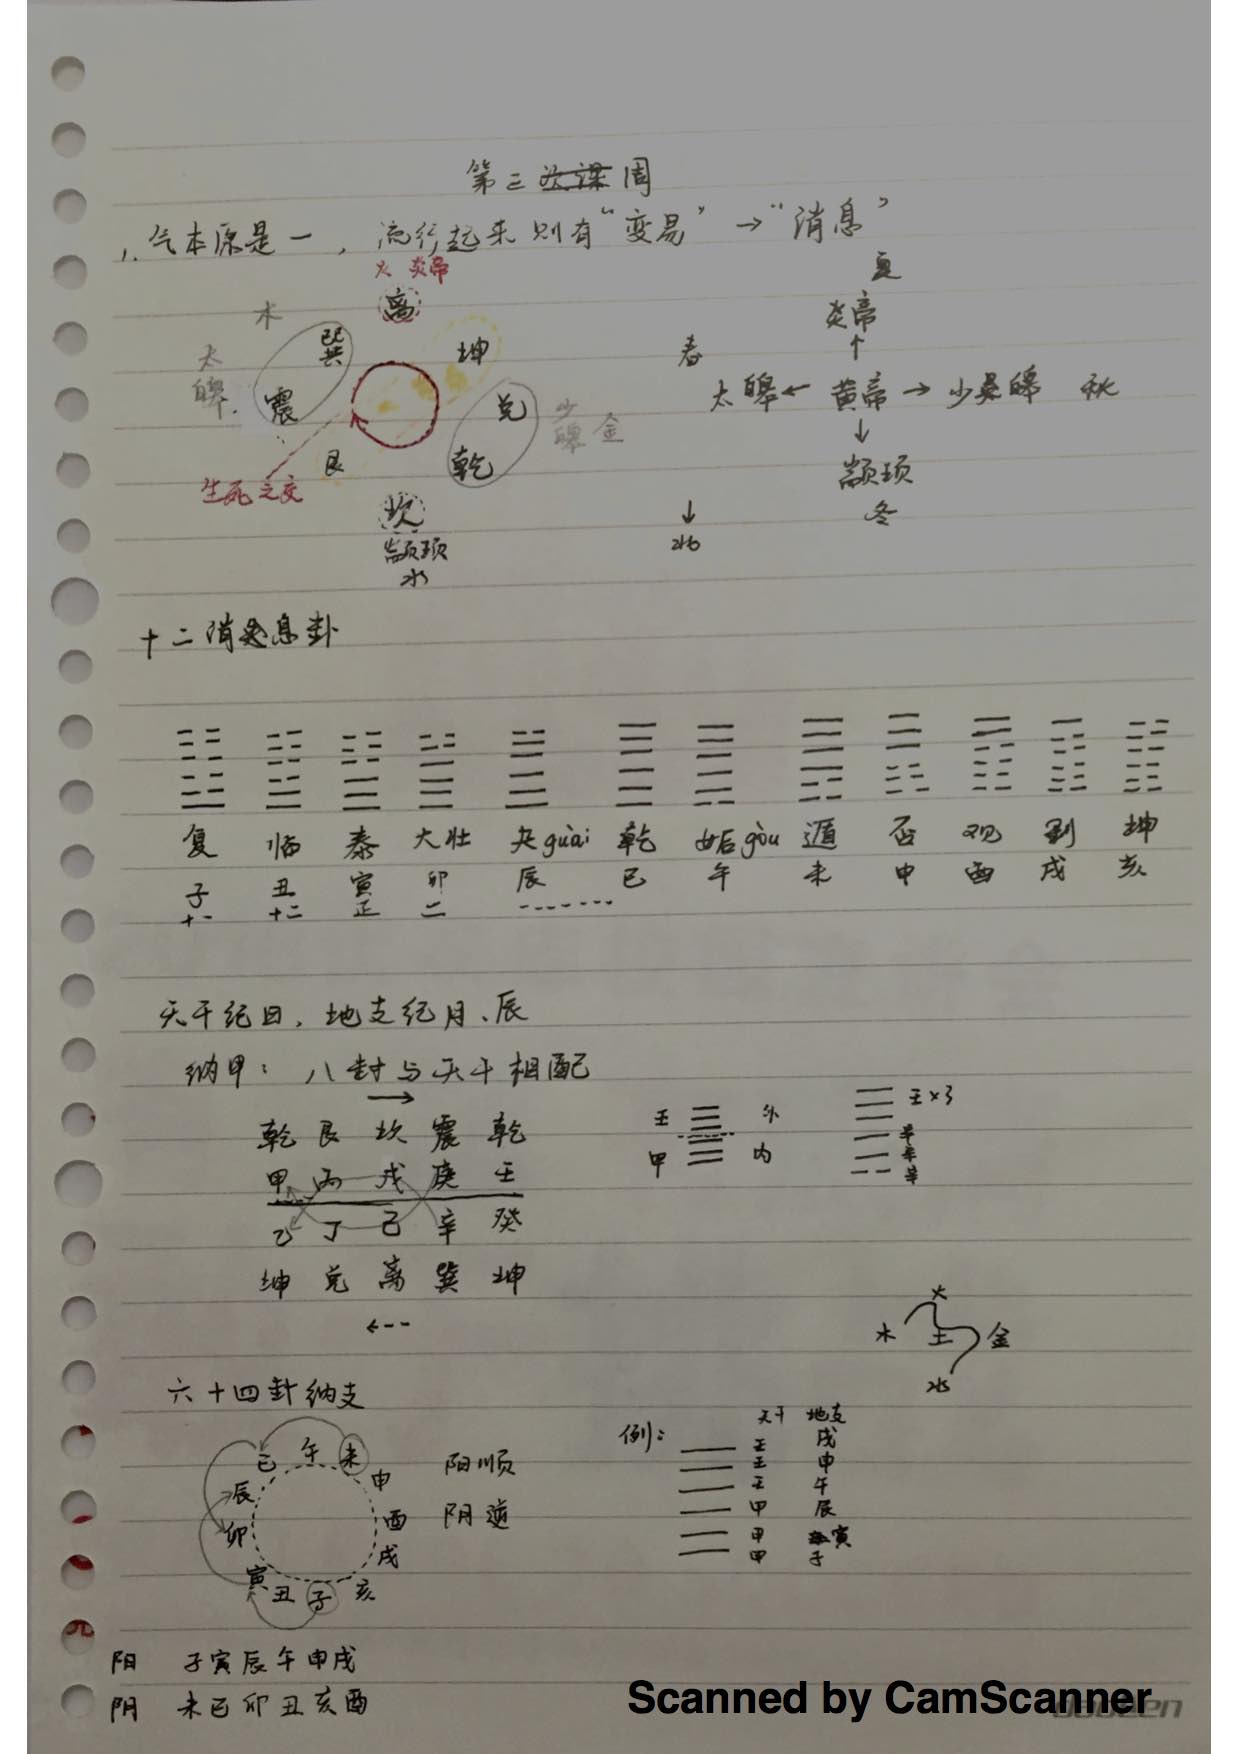 第三周
1. 气本原是一，流行起来则有“变易”→“消息”
火 炎帝
离
木 巽 坤
太皞 震 兑 少皞 金
艮 乾
生死之交
坎
颛顼
水
夏
炎帝
↑
春
太皞 ← 黄帝 → 少皞 秋
↓
颛顼
冬
↓
水
十二消息卦
复 临 泰 大壮 夬guài 乾 姤gòu 遁 否 观 剥 坤
子 丑 寅 卯 辰 巳 午 未 申 酉 戌 亥
十一 十二 正 二 -------
天干纪日，地支纪月、辰
纳甲：八封与天干相配
→
乾 艮 坎 震 乾
甲 丙 戊 庚 壬
乙 丁 己 辛 癸
坤 兑 离 巽 坤
←--
壬 外
甲 内
壬×3
辛
辛
辛
火
木 土 金
水
六十四卦纳支
巳 午 未
辰 申
卯 酉
寅 戌
丑 子 亥
阳顺
阴逆
例：
天干 地支
壬 戌
壬 申
壬 午
甲 辰
甲 寅
甲 子
阳 子寅辰午申戌
阴 未巳卯丑亥酉
Scanned by CamScanner